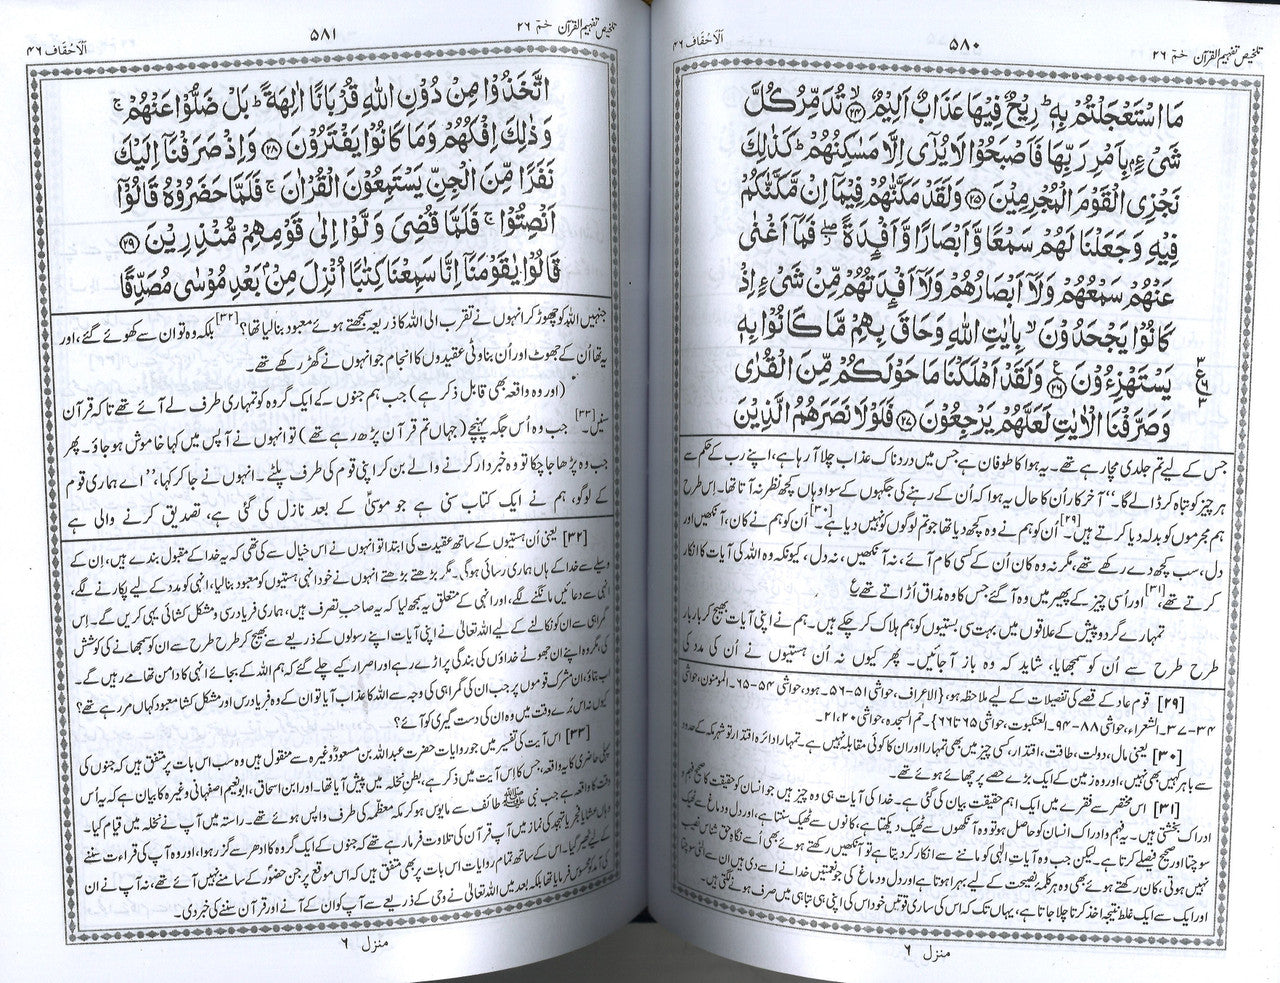 تلخیص تفہیم القرآن حٰمٓ ۲۶
۵۸۰
الْاَحْقَاف ۴۶
مَا اسْتَعْجَلْتُمْ بِهٖ ؕ رِيْحٌ فِيْهَا عَذَابٌ اَلِيْمٌ ﴿۲۴﴾ تُدَمِّرُ كُلَّ
شَيْءٍۭ بِاَمْرِ رَبِّهَا فَاَصْبَحُوْا لَا يُرٰٓى اِلَّا مَسٰكِنُهُمْ ؕ كَذٰلِكَ
نَجْزِى الْقَوْمَ الْمُجْرِمِيْنَ ﴿۲۵﴾ وَلَقَدْ مَكَّنّٰهُمْ فِيْمَاۤ اِنْ مَّكَّنّٰكُمْ
فِيْهِ وَجَعَلْنَا لَهُمْ سَمْعًا وَّاَبْصَارًا وَّاَفْـِٕدَةً ۖ فَمَاۤ اَغْنٰى
عَنْهُمْ سَمْعُهُمْ وَلَاۤ اَبْصَارُهُمْ وَلَاۤ اَفْـِٕدَتُهُمْ مِّنْ شَيْءٍ اِذْ
كَانُوْا يَجْحَدُوْنَ ۙ بِاٰيٰتِ اللّٰهِ وَحَاقَ بِهِمْ مَّا كَانُوْا بِهٖ
يَسْتَهْزِءُوْنَ ﴿۲۶﴾ ع وَلَقَدْ اَهْلَكْنَا مَا حَوْلَكُمْ مِّنَ الْقُرٰى
وَصَرَّفْنَا الْاٰيٰتِ لَعَلَّهُمْ يَرْجِعُوْنَ ﴿۲۷﴾ فَلَوْلَا نَصَرَهُمُ الَّذِيْنَ
جس کے لیے تم جلدی مچا رہے تھے۔ یہ ہوا کا طوفان ہے جس میں دردناک عذاب چلا آ رہا ہے، اپنے رب کے حکم سے
ہر چیز کو تباہ کر ڈالے گا۔‘‘ آخر کار اُن کا حال یہ ہوا کہ اُن کے رہنے کی جگہوں کے سوا وہاں کچھ نظر نہ آتا تھا۔ اِس طرح
ہم مجرموں کو بدلہ دیا کرتے ہیں۔[۲۹] اُن کو ہم نے وہ کچھ دیا تھا جو تم لوگوں کو نہیں دیا ہے۔[۳۰] اُن کو ہم نے کان، آنکھیں اور
دل، سب کچھ دے رکھے تھے، مگر نہ وہ کان اُن کے کسی کام آئے، نہ آنکھیں، نہ دل، کیونکہ وہ اللہ کی آیات کا انکار
کرتے تھے،[۳۱] اور اُسی چیز کے پھیر میں وہ آ گئے جس کا وہ مذاق اڑاتے تھے ع
تمہارے گرد و پیش کے علاقوں میں بہت سی بستیوں کو ہم ہلاک کر چکے ہیں۔ ہم نے اپنی آیات بھیج کر بار بار
طرح طرح سے اُن کو سمجھایا، شاید کہ وہ باز آ جائیں۔ پھر کیوں نہ اُن ہستیوں نے اُن کی مدد کی
[۲۹] قوم عاد کے قصے کی تفصیلات کے لیے ملاحظہ ہو، {الاعراف، حواشی ۵۱-۵۶۔ ہود، حواشی ۵۴-۶۵۔ المومنون، حواشی
۳۴-۳۷۔ الشعراء، حواشی ۸۸-۹۴۔ العنکبوت، حواشی ۶۵ تا ۶۶}۔ حٰم السجدہ، حواشی ۲۰، ۲۱۔
[۳۰] یعنی مال، دولت، طاقت، اقتدار، کسی چیز میں بھی تمہارا اور ان کا کوئی مقابلہ نہیں ہے۔ تمہارا دائرہ اقتدار تو شہر مکہ کے حدود
سے باہر کہیں بھی نہیں، اور وہ زمین کے ایک بڑے حصے پر چھائے ہوئے تھے۔
[۳۱] اس مختصر سے فقرے میں ایک اہم حقیقت بیان کی گئی ہے۔ خدا کی آیات ہی وہ چیز ہیں جو انسان کو حقیقت کا صحیح فہم و
ادراک بخشتی ہیں۔ یہ فہم و ادراک انسان کو حاصل ہو تو وہ آنکھوں سے ٹھیک دیکھتا ہے، کانوں سے ٹھیک سنتا ہے، اور دل و دماغ سے ٹھیک
سوچتا اور صحیح فیصلے کرتا ہے۔ لیکن جب وہ آیات الٰہی کو ماننے سے انکار کر دیتا ہے تو آنکھیں رکھتے ہوئے بھی اُسے نگاہ حق شناس نصیب
نہیں ہوتی، کان رکھتے ہوئے بھی وہ ہر کلمۂ نصیحت کے لیے بہرا ہوتا ہے اور دل و دماغ کی جو نعمتیں خدا نے اسے دی ہیں ان سے الٹی سوچتا
اور ایک سے ایک غلط نتیجہ اخذ کرتا چلا جاتا ہے، یہاں تک کہ اس کی ساری قوتیں خود اس کی اپنی ہی تباہی میں صرف ہونے لگتی ہیں۔
منزل ۶
تلخیص تفہیم القرآن حٰمٓ ۲۶
۵۸۱
الْاَحْقَاف ۴۶
اتَّخَذُوْا مِنْ دُوْنِ اللّٰهِ قُرْبَانًا اٰلِهَةً ؕ بَلْ ضَلُّوْا عَنْهُمْ ۚ
وَذٰلِكَ اِفْكُهُمْ وَمَا كَانُوْا يَفْتَرُوْنَ ﴿۲۸﴾ وَاِذْ صَرَفْنَاۤ اِلَيْكَ
نَفَرًا مِّنَ الْجِنِّ يَسْتَمِعُوْنَ الْقُرْاٰنَ ۚ فَلَمَّا حَضَرُوْهُ قَالُوْۤا
اَنْصِتُوْا ۚ فَلَمَّا قُضِىَ وَلَّوْا اِلٰى قَوْمِهِمْ مُّنْذِرِيْنَ ﴿۲۹﴾
قَالُوْا يٰقَوْمَنَاۤ اِنَّا سَمِعْنَا كِتٰبًا اُنْزِلَ مِنْۢ بَعْدِ مُوْسٰى مُصَدِّقًا
جنہیں اللہ کو چھوڑ کر انہوں نے تقرب الی اللہ کا ذریعہ سمجھتے ہوئے معبود بنا لیا تھا؟[۳۲] بلکہ وہ تو ان سے کھوئے گئے، اور
یہ تھا اُن کے جھوٹ اور اُن بناوٹی عقیدوں کا انجام جو انہوں نے گھڑ رکھے تھے۔
(اور وہ واقعہ بھی قابل ذکر ہے) جب ہم جنوں کے ایک گروہ کو تمہاری طرف لے آئے تھے تاکہ قرآن
سنیں۔[۳۳] جب وہ اُس جگہ پہنچے (جہاں تم قرآن پڑھ رہے تھے) تو انہوں نے آپس میں کہا خاموش ہو جاؤ۔ پھر
جب وہ پڑھا جا چکا تو وہ خبردار کرنے والے بن کر اپنی قوم کی طرف پلٹے۔ انہوں نے جا کر کہا، ’’اے ہماری قوم
کے لوگو، ہم نے ایک کتاب سنی ہے جو موسٰی کے بعد نازل کی گئی ہے، تصدیق کرنے والی ہے
[۳۲] یعنی اُن ہستیوں کے ساتھ عقیدت کی ابتدا تو انہوں نے اس خیال سے کی تھی کہ یہ خدا کے مقبول بندے ہیں، ان کے
وسیلے سے خدا کے ہاں ہماری رسائی ہوگی۔ مگر بڑھتے بڑھتے انہوں نے خود انہی ہستیوں کو معبود بنا لیا، انہی کو مدد کے لیے پکارنے لگے،
انہی سے دعائیں مانگنے لگے، اور انہی کے متعلق یہ سمجھ لیا کہ یہ صاحب تصرف ہیں، ہماری فریاد رسی و مشکل کشائی یہی کریں گے۔ اِس
گمراہی سے اُن کو نکالنے کے لیے اللہ تعالٰی نے اپنی آیات اپنے رسولوں کے ذریعے سے بھیج کر طرح طرح سے ان کو سمجھانے کی کوشش
کی، مگر وہ اپنے ان جھوٹے خداؤں کی بندگی پر اڑے رہے اور اصرار کیے چلے گئے کہ ہم اللہ کے بجائے انہی کا دامن تھامے رہیں گے۔
اب بتاؤ، ان مشرک قوموں پر جب ان کی گمراہی کی وجہ سے اللہ کا عذاب آیا تو ان کے وہ فریاد رس اور مشکل کشا معبود کہاں مر رہے تھے؟
کیوں نہ اس بُرے وقت میں وہ ان کی دست گیری کو آئے؟
[۳۳] اس آیت کی تفسیر میں جو روایات حضرت عبداللہ بن مسعودؓ وغیرہ سے منقول ہیں وہ سب اس بات پر متفق ہیں کہ جنوں کی
پہلی حاضری کا یہ واقعہ، جس کا اِس آیت میں ذکر ہے، بطن نخلہ میں پیش آیا تھا۔ اور ابن اسحاق، ابو نعیم اصفہانی وغیرہ کا بیان ہے کہ یہ اُس
وقت کا واقعہ ہے جب نبی ﷺ طائف سے مایوس ہو کر مکہ معظمہ کی طرف واپس ہوئے تھے۔ راستہ میں آپ نے نخلہ میں قیام کیا۔
وہاں عشا یا فجر یا تہجد کی نماز میں آپ قرآن کی تلاوت فرما رہے تھے کہ جنوں کے ایک گروہ کا ادھر سے گزر ہوا، اور وہ آپ کی قراءت سننے
کے لیے ٹھیر گیا۔ اس کے ساتھ تمام روایات اس بات پر بھی متفق ہیں کہ اس موقع پر جن حضورؐ کے سامنے نہیں آئے تھے، نہ آپ نے ان
کی آمد کو محسوس فرمایا تھا بلکہ بعد میں اللہ تعالٰی نے وحی کے ذریعے سے آپ کو ان کے آنے اور قرآن سننے کی خبر دی۔
منزل ۶